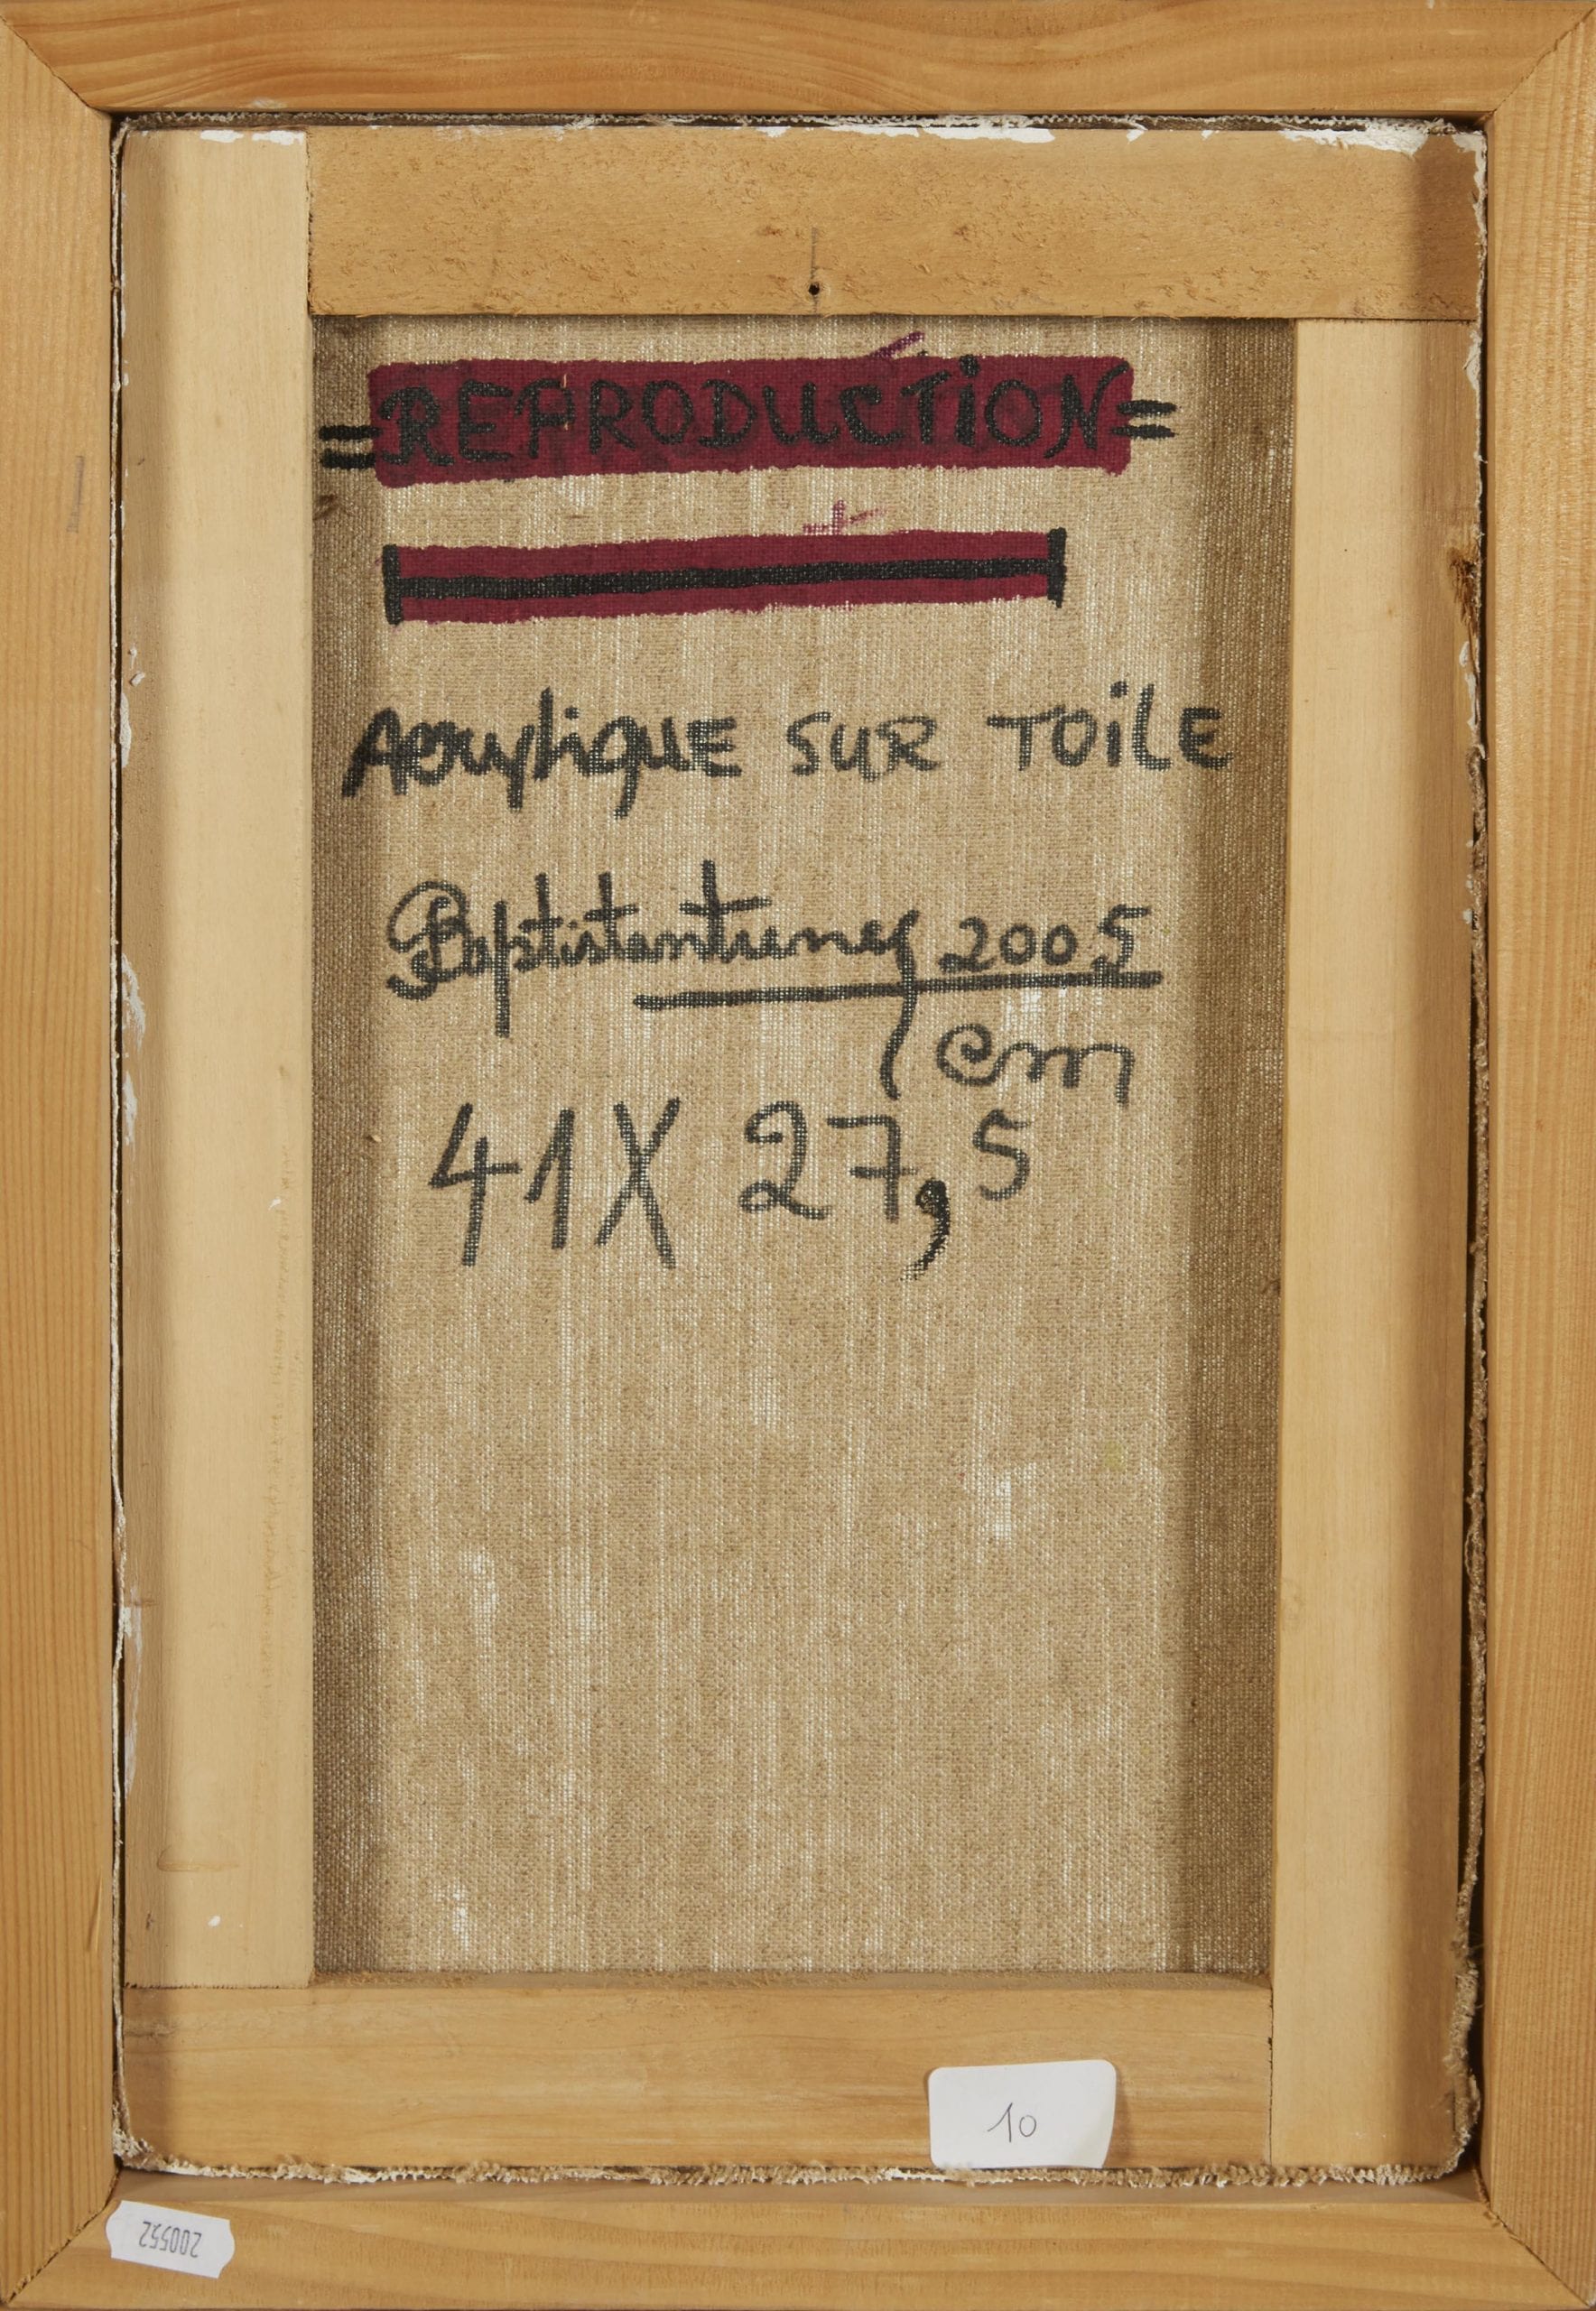 =REPRODUCTION=
Acrylique SUR TOiLE
Baptistantunes 2005
cm
41 X 27,5
10
200552